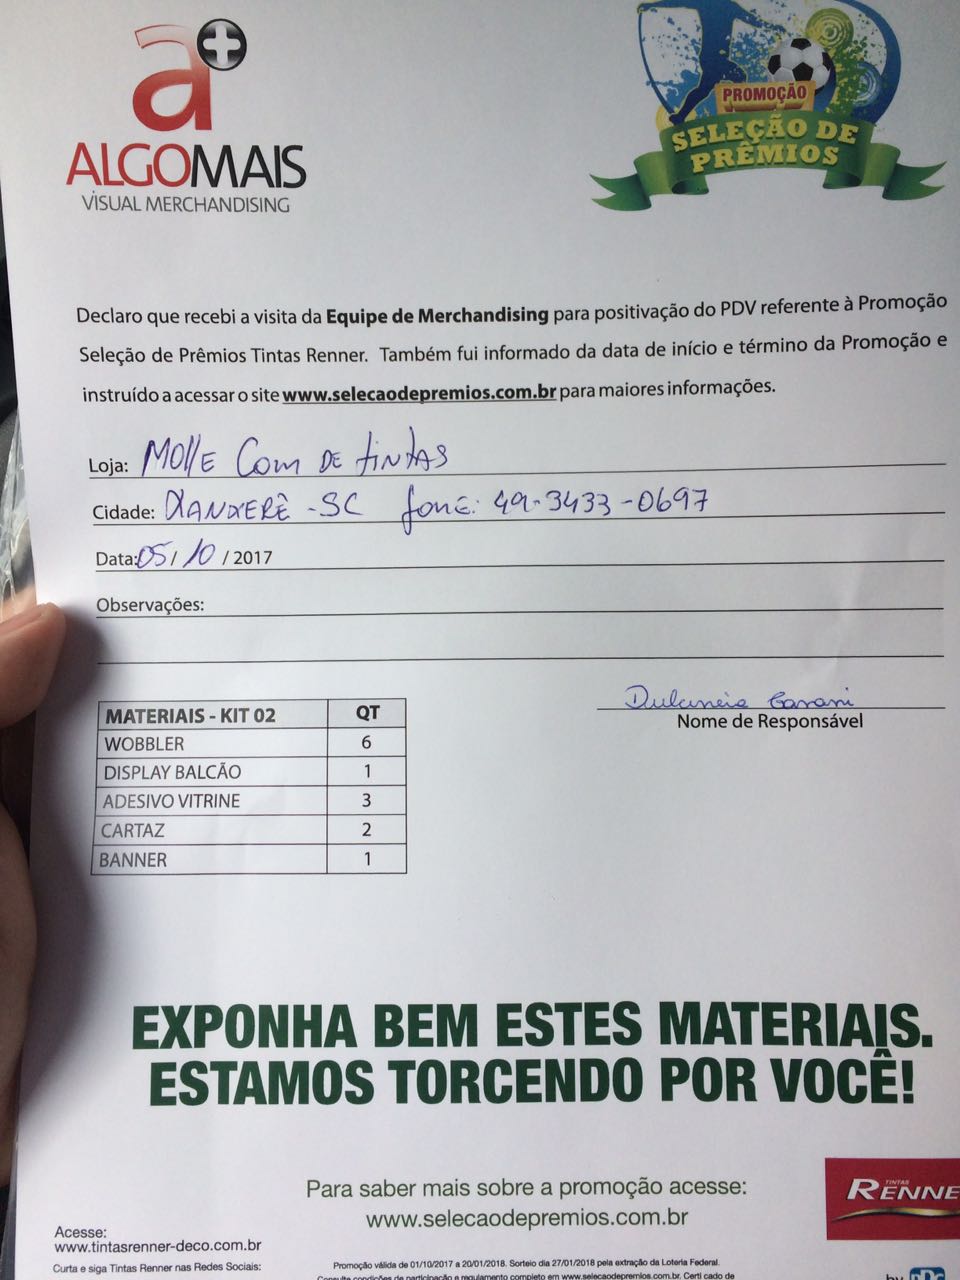 a+
ALGOMAIS
VISUAL MERCHANDISING
PROMOÇÃO
SELEÇÃO DE
PRÊMIOS
Declaro que recebi a visita da Equipe de Merchandising para positivação do PDV referente à Promoção
Seleção de Prêmios Tintas Renner. Também fui informado da data de início e término da Promoção e
instruído a acessar o site www.selecaodepremios.com.br para maiores informações.
Loja: MOllE Com DE tINtAS
Cidade: XANXERÊ - SC fone: 49-3433-0697
Data: 05/ 10 / 2017
Observações:
Nome de Responsável
MATERIAIS - KIT 02 QT
WOBBLER 6
DISPLAY BALCÃO 1
ADESIVO VITRINE 3
CARTAZ 2
BANNER 1
EXPONHA BEM ESTES MATERIAIS.
ESTAMOS TORCENDO POR VOCÊ!
Para saber mais sobre a promoção acesse:
www.selecaodepremios.com.br
TINTAS
RENNE
Acesse:
www.tintasrenner-deco.com.br
Curta e siga Tintas Renner nas Redes Sociais:
Promoção válida de 01/10/2017 a 20/01/2018. Sorteio dia 27/01/2018 pela extração da Loteria Federal.
Consulte condições de participação e regulamento completo em www.selecaodepremios.com.br. Certi cado de
by PPG